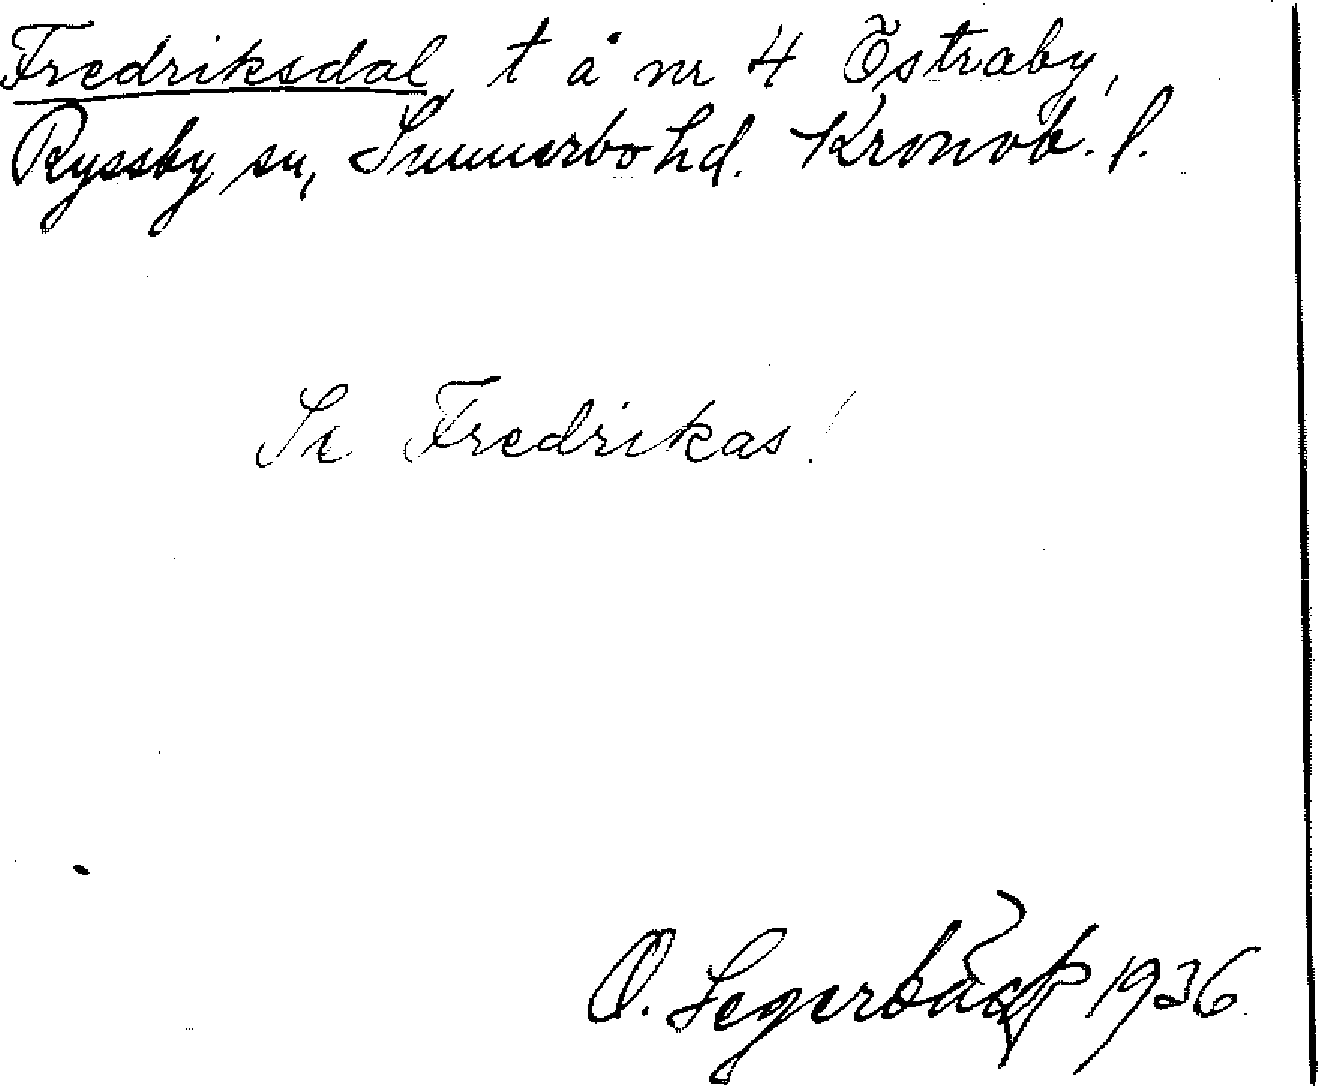 Fredriksdal, t å nr 4 Östraby,
Ryssby sn, Sunnerbo hd. Kronob. l.
Se Fredrikas!
O. Segerbäck 1936.